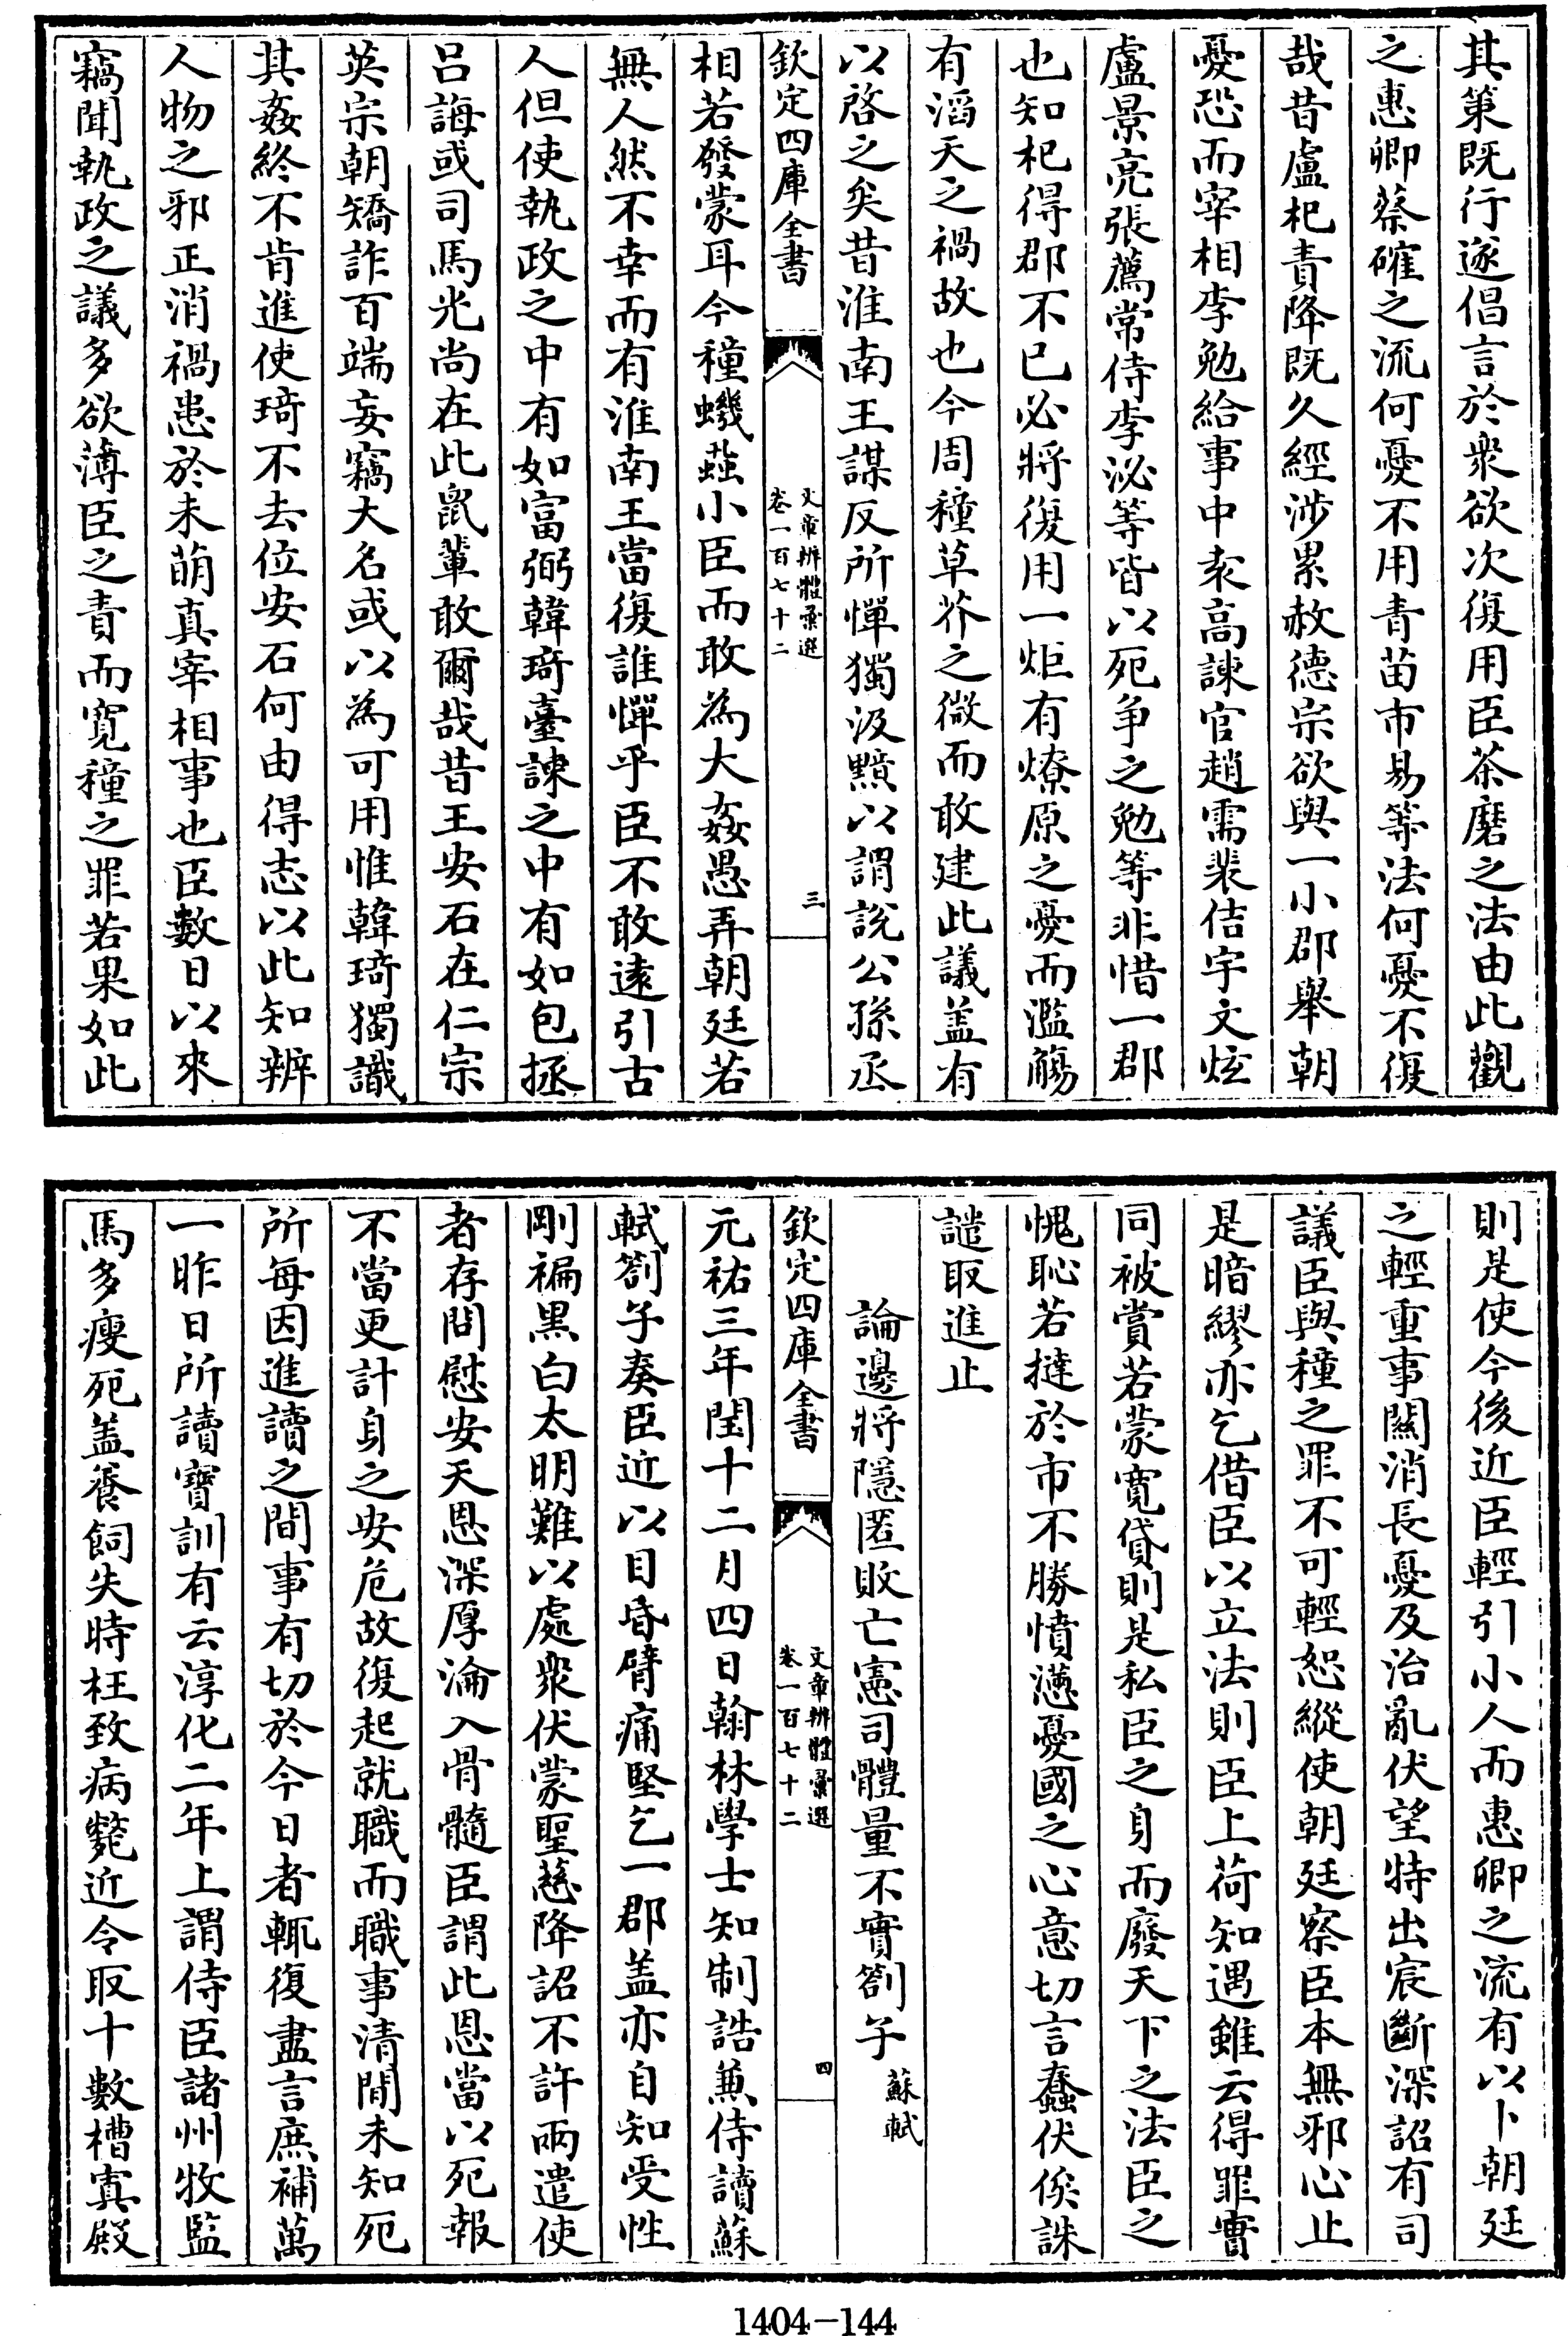 其策既行遂倡言於衆欲次復用臣茶磨之法由此觀
之惠卿蔡確之流何憂不用青苗市易等法何憂不復
哉昔盧杞責降既久經涉累赦德宗欲與一小郡舉朝
憂恐而宰相李勉給事中袁高諫官趙需裴佶宇文炫
盧景亮張薦常侍李泌等皆以死争之勉等非惜一郡
也知杞得郡不已必將復用一炬有燎原之憂而濫觴
有滔天之禍故也今周穜草芥之微而敢建此議盖有
以啓之矣昔淮南王謀反所憚獨汲黯以謂說公孫丞
欽定四庫全書
文章辨體彚選
卷一百七十二
三
相若發蒙耳今穜蟣蝨小臣而敢為大姦愚弄朝廷若
無人然不幸而有淮南王當復誰憚乎臣不敢逺引古
人但使執政之中有如富弼韓琦臺諫之中有如包拯
吕誨或司馬光尚在此鼠輩敢爾哉昔王安石在仁宗
英宗朝矯詐百端妄竊大名或以為可用惟韓琦獨識
其姦終不肯進使琦不去位安石何由得志以此知辨
人物之邪正消禍患於未萌真宰相事也臣數日以來
竊聞執政之議多欲薄臣之責而寛穜之罪若果如此
則是使今後近臣輕引小人而惠卿之流有以卜朝廷
之輕重事關消長憂及治亂伏望特出宸斷深詔有司
議臣與穜之罪不可輕恕縱使朝廷察臣本無邪心止
是暗繆亦乞借臣以立法則臣上荷知遇雖云得罪實
同被賞若蒙寛貸則是私臣之身而廢天下之法臣之
愧恥若撻於市不勝憤懣憂國之心意切言蠢伏俟誅
譴取進止
論邊將隠匿敗亡憲司體量不實劄子
蘇軾
欽定四庫全書
文章辨體彚選
卷一百七十二
四
元祐三年閏十二月四日翰林學士知制誥兼侍讀蘇
軾劄子奏臣近以目昏臂痛堅乞一郡盖亦自知受性
剛褊黑白太明難以處衆伏蒙聖慈降詔不許兩遣使
者存問慰安天恩深厚淪入骨髓臣謂此恩當以死報
不當更計身之安危故復起就職而職事清閒未知死
所每因進讀之間事有切於今日者輒復盡言庶補萬
一昨日所讀寶訓有云淳化二年上謂侍臣諸州牧監
馬多瘦死盖養飼失時枉致病斃近令取十數槽寘殿
1404-144